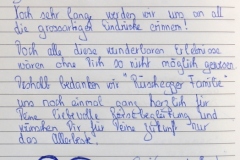 Noch sehr lang werden wir uns an all
die grossartigen Eindrücke erinnern!
Doch alle diese wunderbaren Erlebnisse
wären ohne Dich so nicht möglich gewesen.
Deshalb bedanken wir "Rüscheger Familie"
uns noch einmal ganz herzlich für
Deine liebevolle Reisebegleitung und
wünschen Dir für Deine Zukunft nur
das Allerbeste.